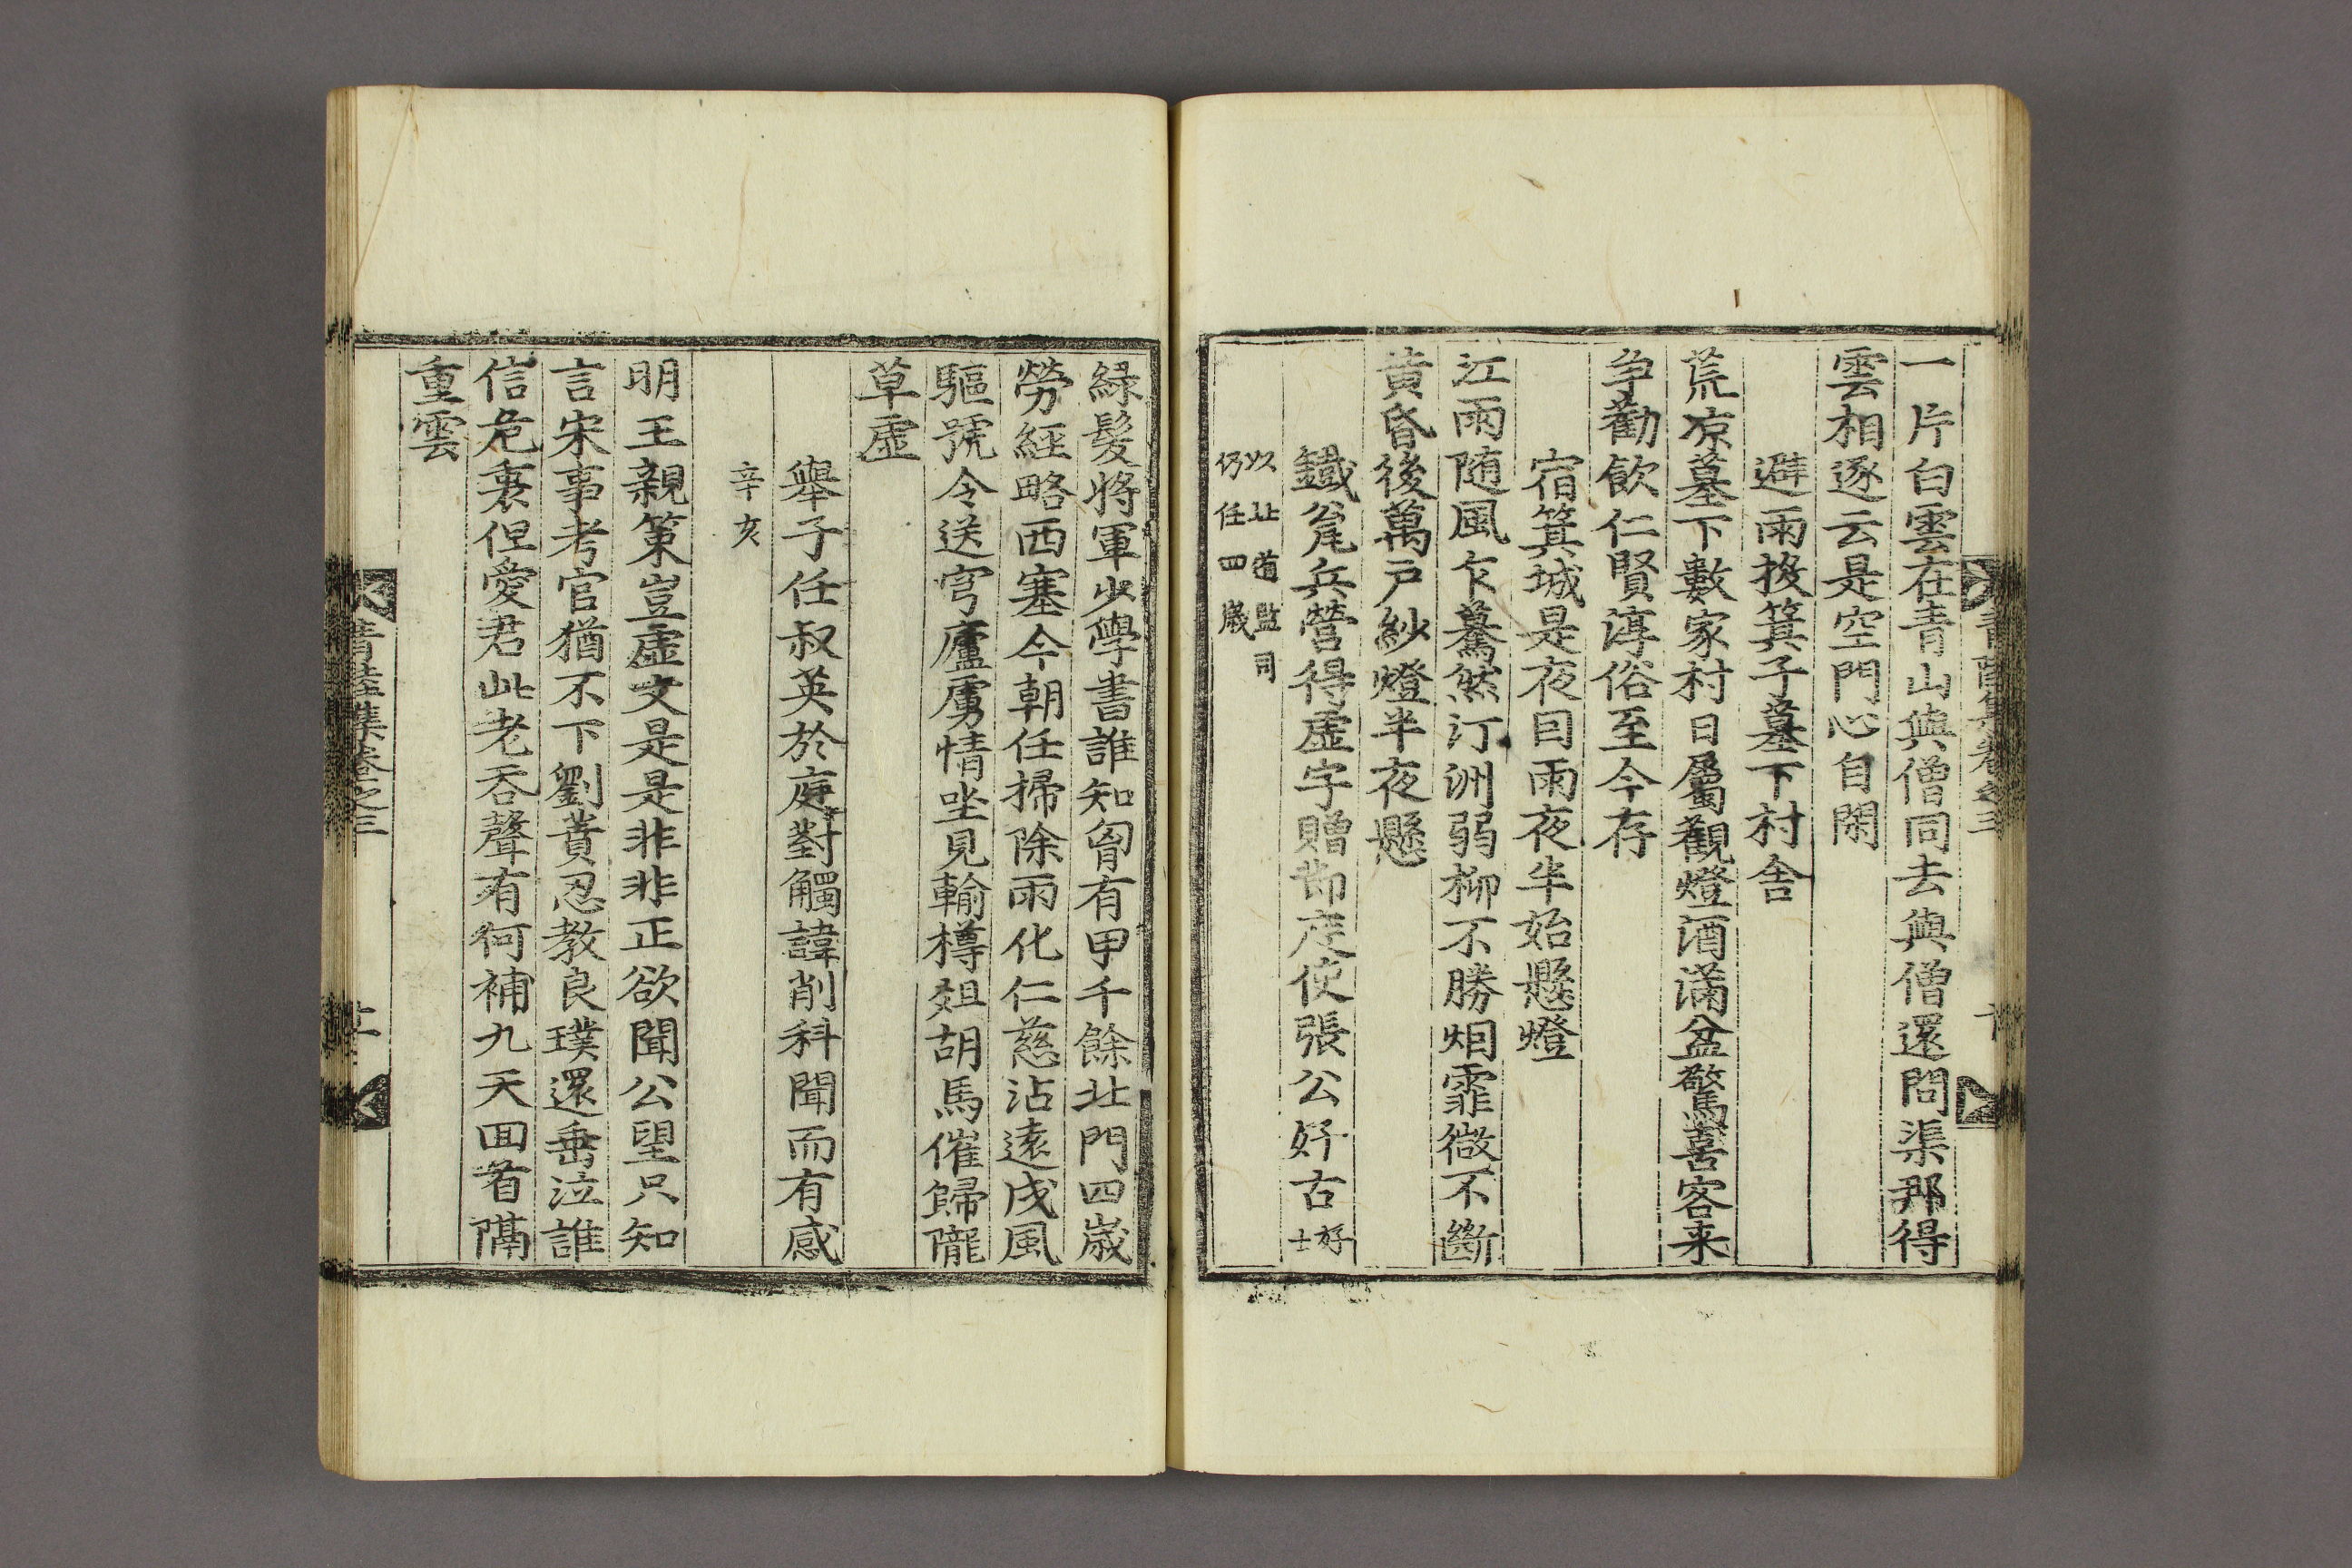 一片白雲在青山與僧同去與僧還問渠那得
雲相逐云是空門心自閑
避雨投箕子墓下村舍
荒凉墓下數家村日屬觀燈酒滿盆驚喜客来
争勸飮仁賢淳俗至今存
宿箕城是夜因雨夜半始懸燈
江雨随風乍驀然汀洲弱柳不勝烟霏微不斷
黄昏後萬戶紗燈半夜懸
鐵瓮兵營得虛字贈節度使張公好古好士
以北道監司
仍任四歲
綠髮將軍少學書誰知胷有甲千餘北門四歲
勞經略西塞今朝任掃除雨化仁慈沾遠戍風
驅號令送穹廬虜情坐見輸樽俎胡馬催歸隴
草虛
擧子任叔英於庭對觸諱削科聞而有感
辛亥
明王親策豈虛文是是非非正欲聞公望只知
言宋事考官猶不下劉蕡忍教良璞還垂泣誰
信危裏但愛君此老吞聲有何補九天回首隔
重雲
青陸集卷之三